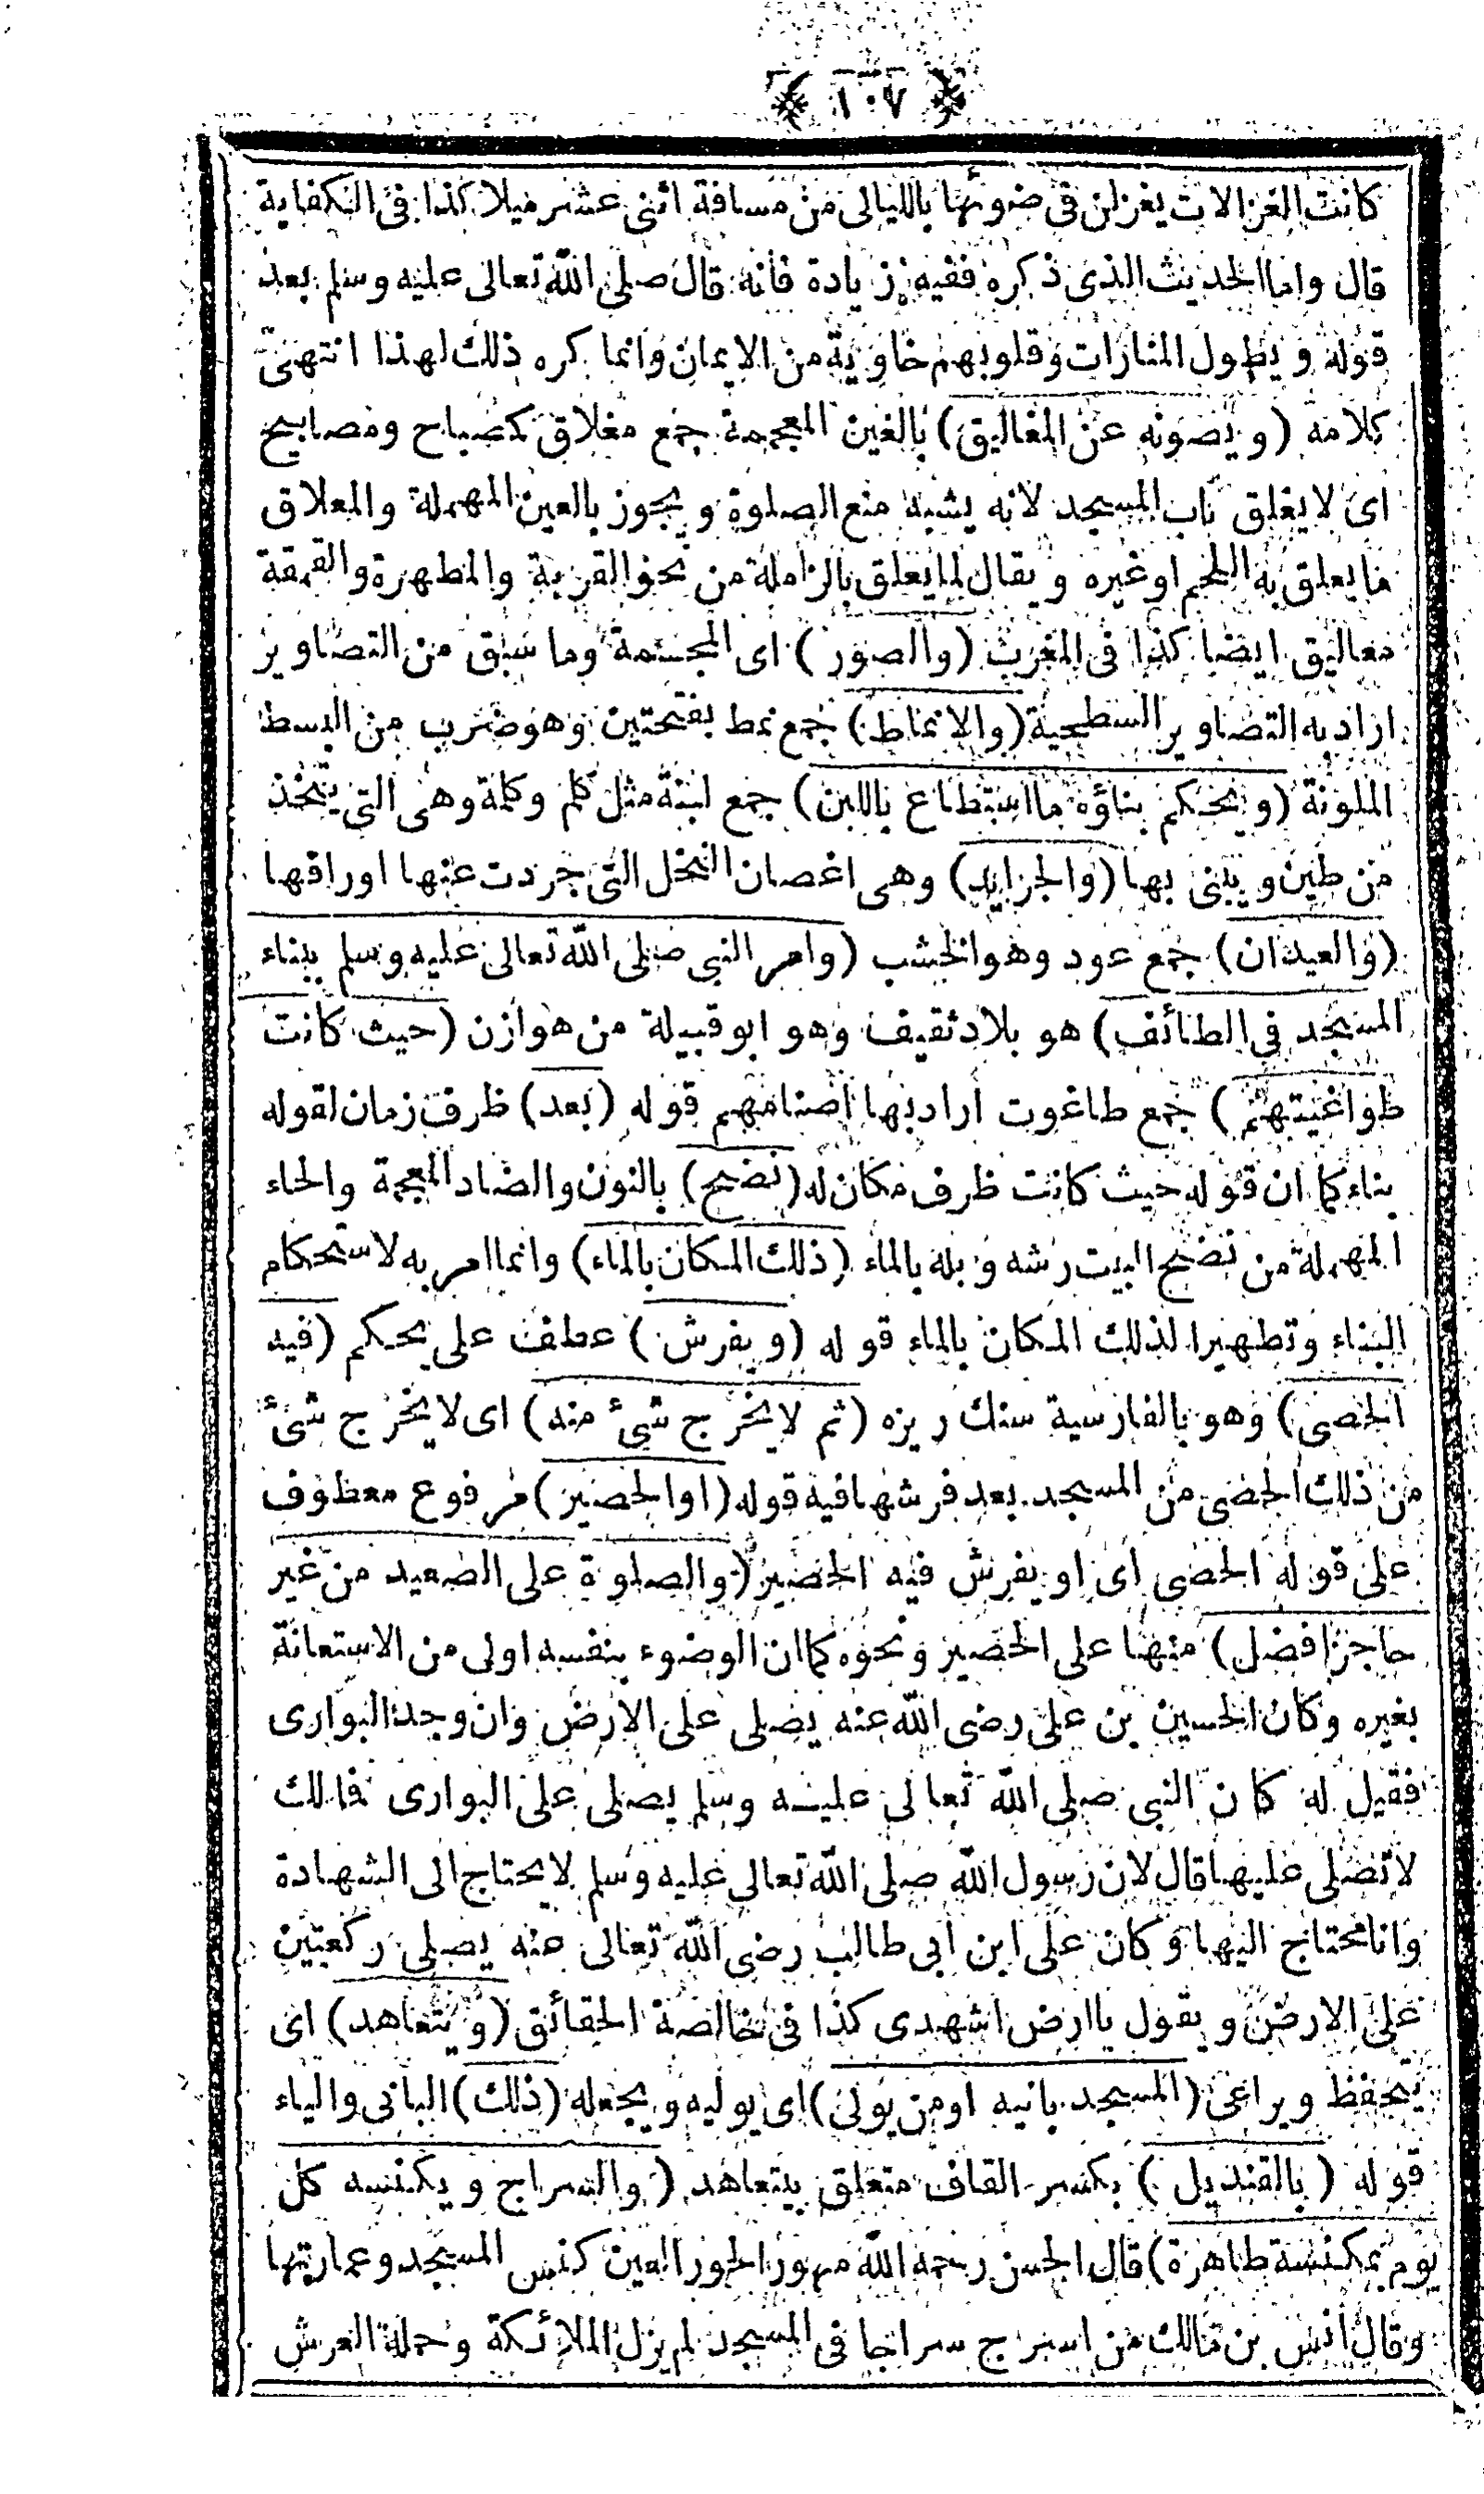 ﴿ ١٠٧ ﴾
كانت الغزالات يغزلن فى ضوئها بالليالى من مسافة اثنى عشر ميلا كذا فى الكفاية
قال واما الحديث الذى ذكره ففيه زيادة فانه قال صلى الله تعالى عليه وسلم بعد
قوله ويطول المنارات وقلوبهم خاوية من الايمان وانما كره ذلك لهذا انتهى
كلامه (ويصونه عن المغاليق) بالغين المعجمة جمع مغلاق كمصباح ومصابيح
اى لا يغلق باب المسجد لانه يشبه منع الصلوة ويجوز بالعين المهملة والمعلاق
ما يعلق به اللحم او غيره ويقال لما يعلق بالزاملة من نحو القربة والمطهرة والقمقمة
معاليق ايضا كذا فى المغرب (والصور) اى المجسمة وما سبق من التصاوير
اراد به التصاوير السطحية (والانماط) جمع نمط بفتحتين وهو ضرب من البسط
الملونة (ويحكم بناؤه ما استطاع باللبن) جمع لبنة مثل كلم وكلمة وهى التى يتخذ
من طين ويبنى بها (والجرايد) وهى اغصان النخل التى جردت عنها اوراقها
(والعيدان) جمع عود وهو الخشب (وامر النبى صلى الله تعالى عليه وسلم ببناء
المسجد فى الطائف) هو بلاد ثقيف وهو ابو قبيلة من هوازن (حيث كانت
طواغيتهم) جمع طاغوت اراد بها اصنامهم قوله (بعد) ظرف زمان لقوله
بناء كما ان قوله حيث كانت ظرف مكان له (نضح) بالنون والضاد المعجمة والحاء
المهملة من نضح البيت رشه وبله بالماء (ذلك المكان بالماء) وانما امر به لاستحكام
البناء وتطهيرا لذلك المكان بالماء قوله (ويفرش) عطف على يحكم (فيه
الحصى) وهو بالفارسية سنك ريزه (ثم لا يخرج شئ منه) اى لا يخرج شئ
من ذلك الحصى من المسجد بعد فرشها فيه قوله (او الحصير) مرفوع معطوف
على قوله الحصى اى او يفرش فيه الحصير (والصلوة على الصعيد من غير
حاجز افضل) منها على الحصير ونحوه كما ان الوضوء بنفسه اولى من الاستعانة
بغيره وكان الحسين بن على رضى الله عنه يصلى على الارض وان وجد البوارى
فقيل له كان النبى صلى الله تعالى عليه وسلم يصلى على البوارى فمالك
لا تصلى عليها قال لان رسول الله صلى الله تعالى عليه وسلم لا يحتاج الى الشهادة
وانا محتاج اليها وكان على ابن ابى طالب رضى الله تعالى عنه يصلى ركعتين
على الارض ويقول يا ارض اشهدى كذا فى خالصة الحقائق (ويتعاهد) اى
يتحفظ ويراعى (المسجد بانيه او من يولى) اى يوليه ويجعله (ذلك) البانى والياء
قوله (بالقنديل) بكسر القاف متعلق بيتعاهد (والسراج ويكنسه كل
يوم بمكنسة طاهرة) قال الحسن رحمه الله مهور الحور العين كنس المسجد وعمارتها
وقال انس بن مالك من اسرج سراجا فى المسجد لم يزل الملائكة وحملة العرش